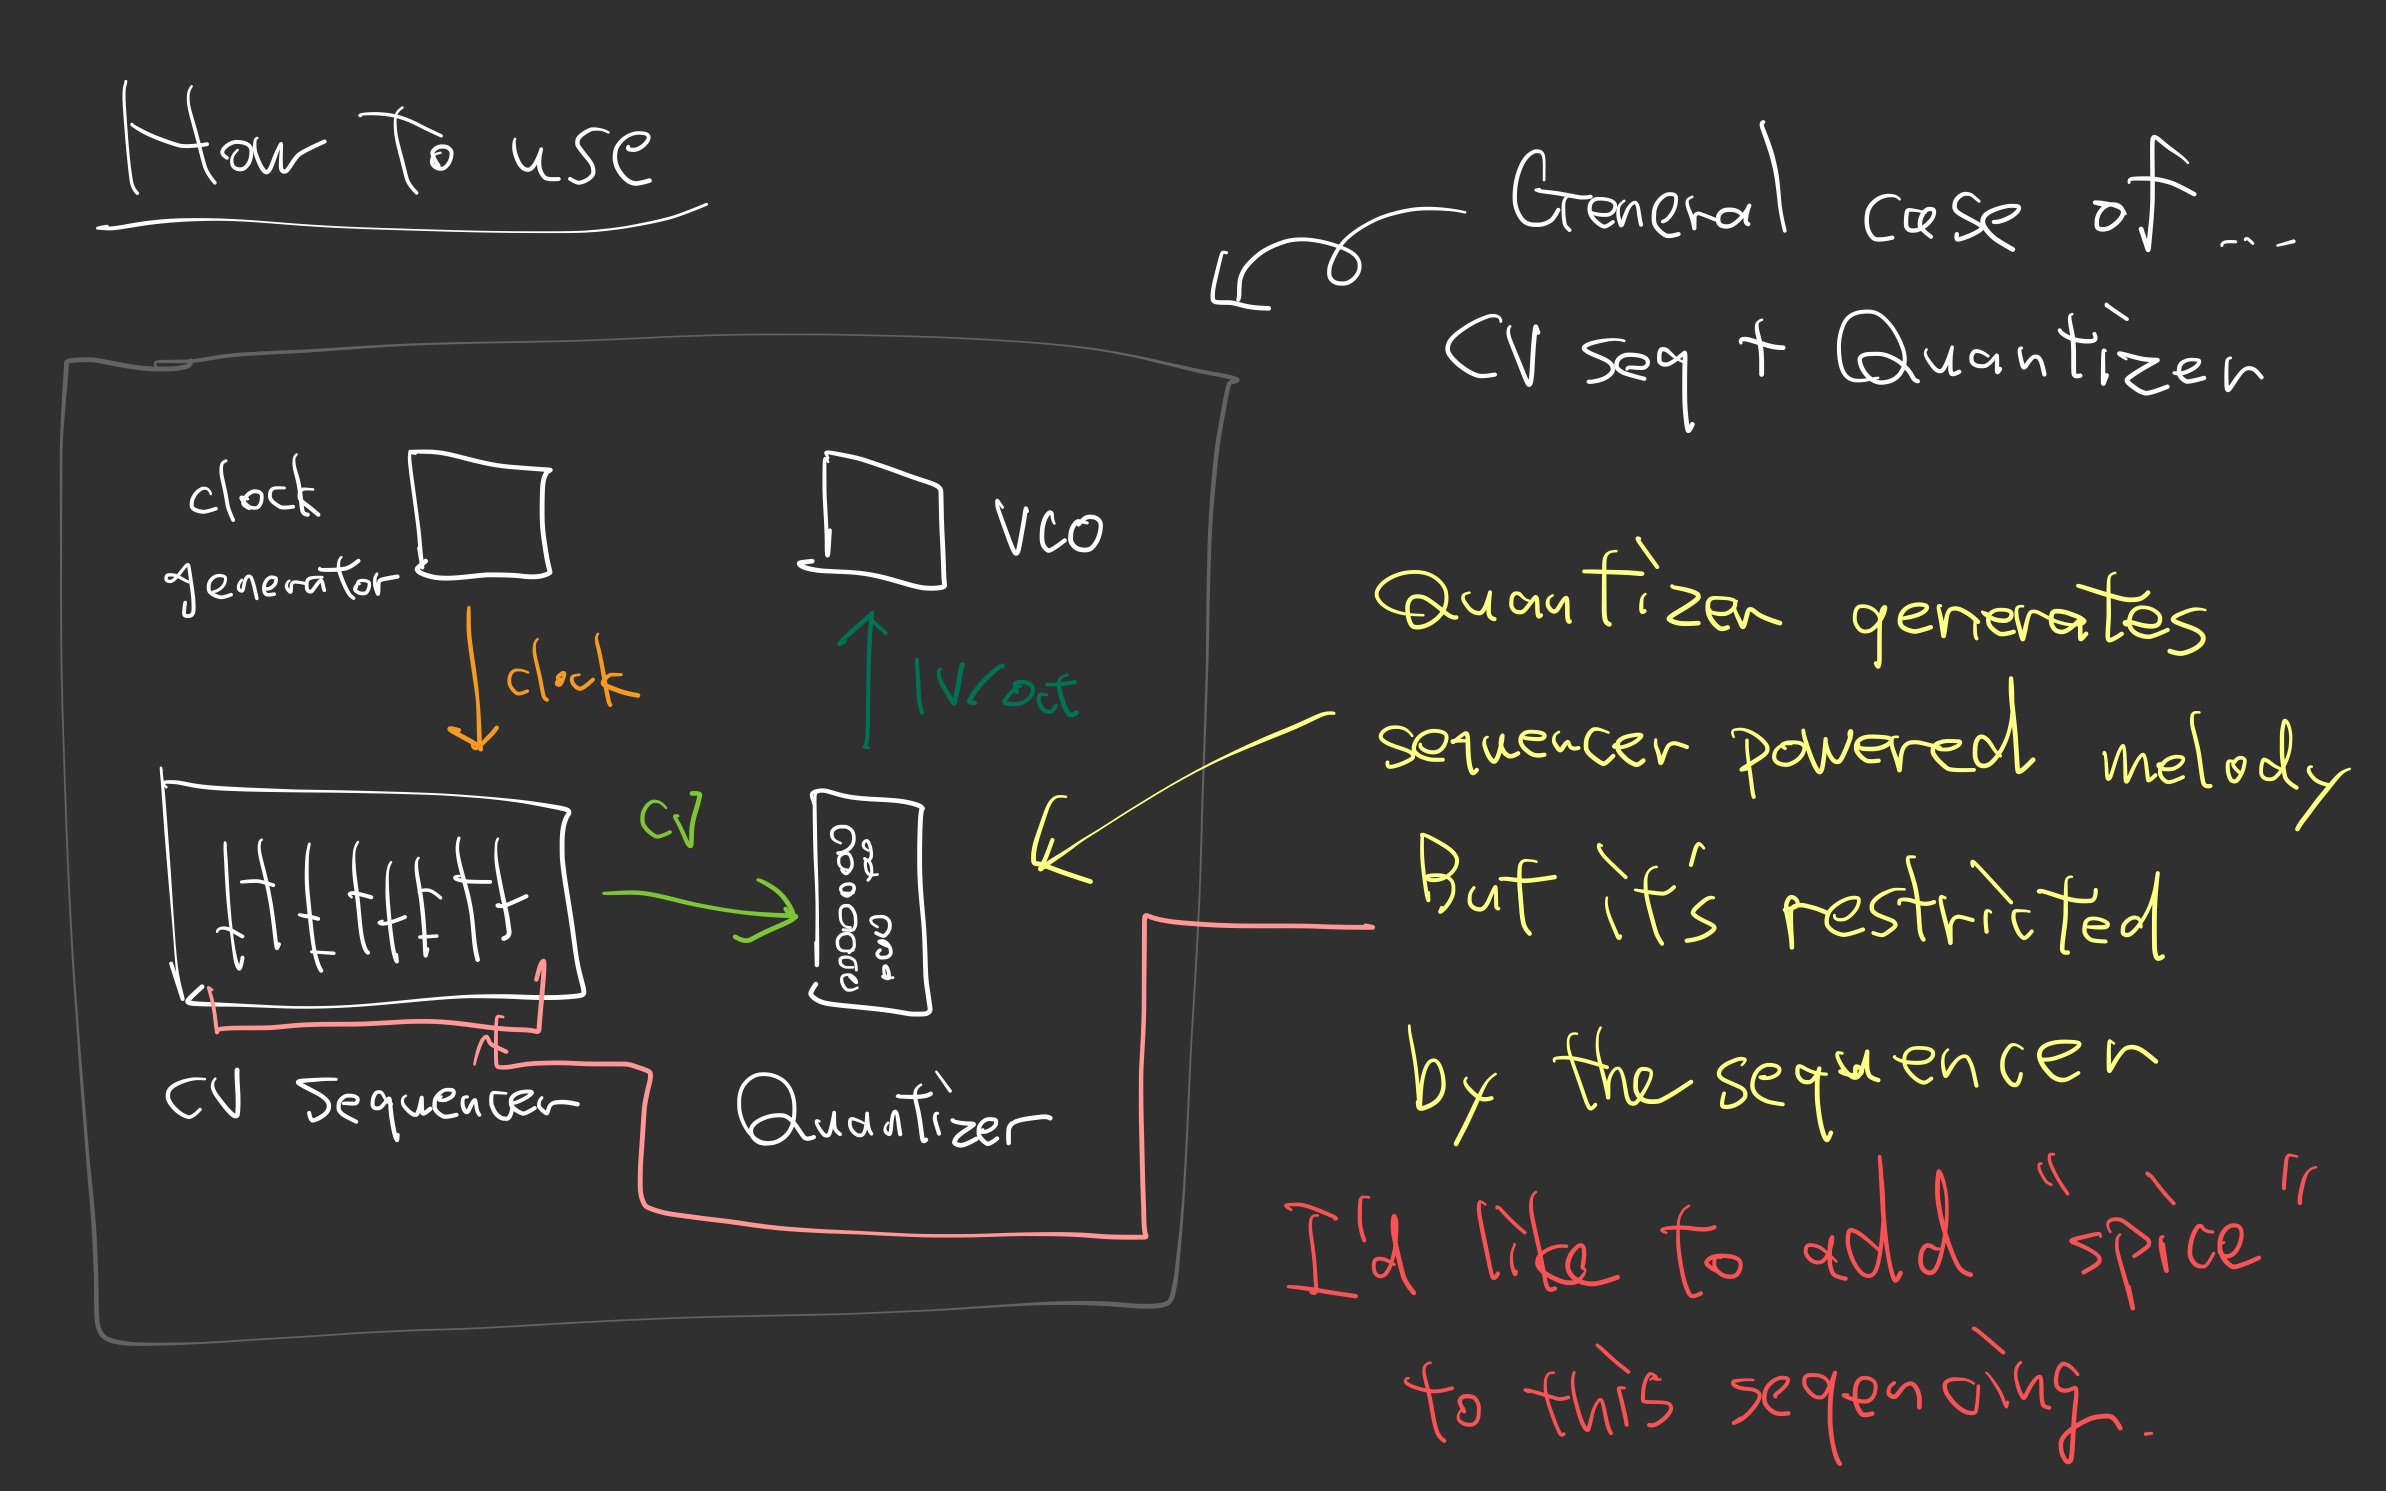 How To use
General case of ...
CV seq + Quantizer
clock
generator
VCO
clock
1V/oct
CV
CV Sequencer
Quantizer
Quantizer generates
sequencer powered melody
But it's restricted
by the sequencer
I'd like to add "spice"
to this seqencing.